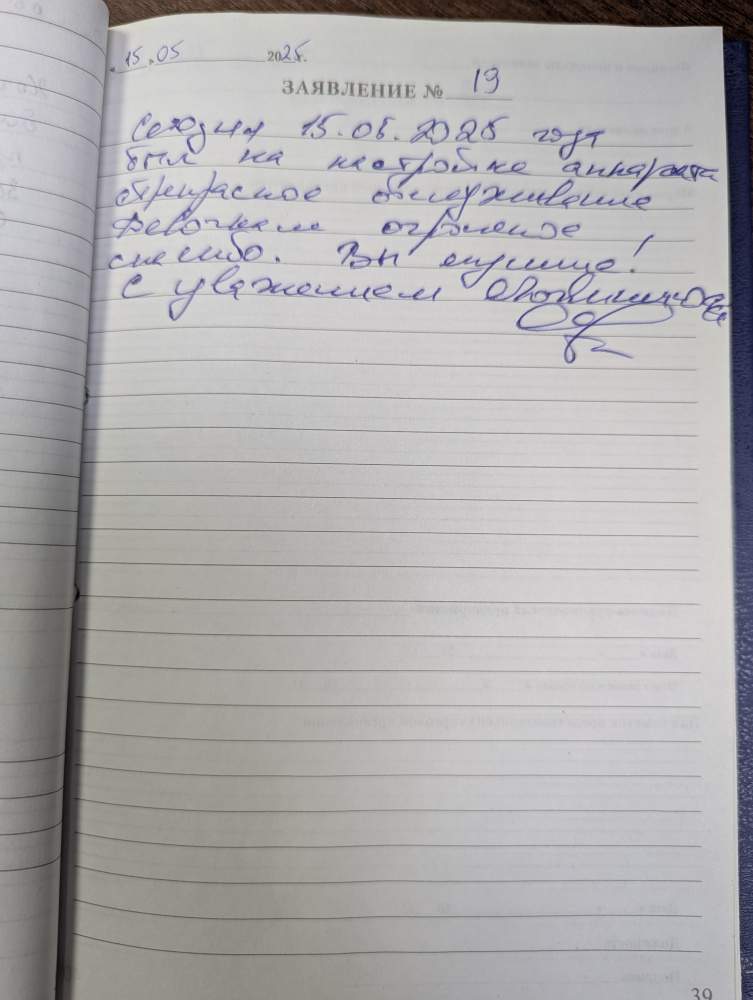 15.05 2025г.
ЗАЯВЛЕНИЕ № 19
Сегодня 15.05.2025 года
был на настройке аппарата
Прекрасное обслуживание
Девочкам огромное
спасибо. Вы лучшие!
С уважением
39